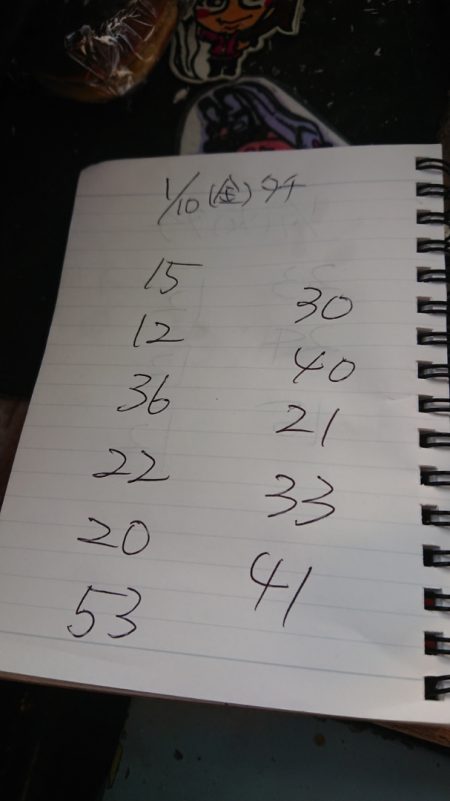 1/10(金)タチ
15
12
36
22
20
53
30
40
21
33
41